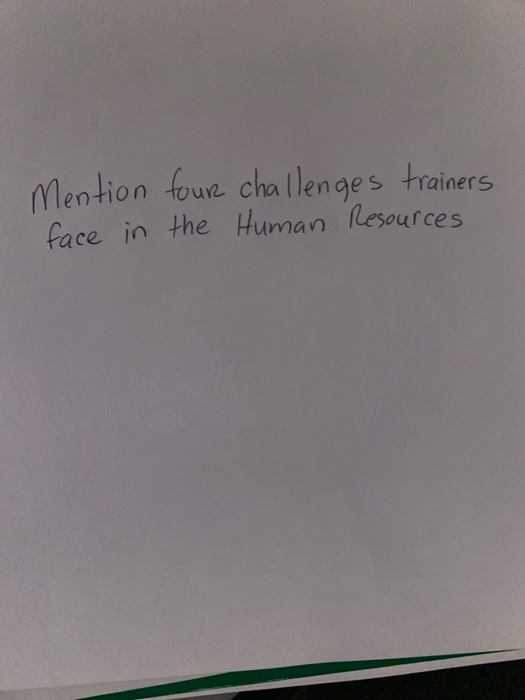 Mention four challenges trainers
face in the Human Resources